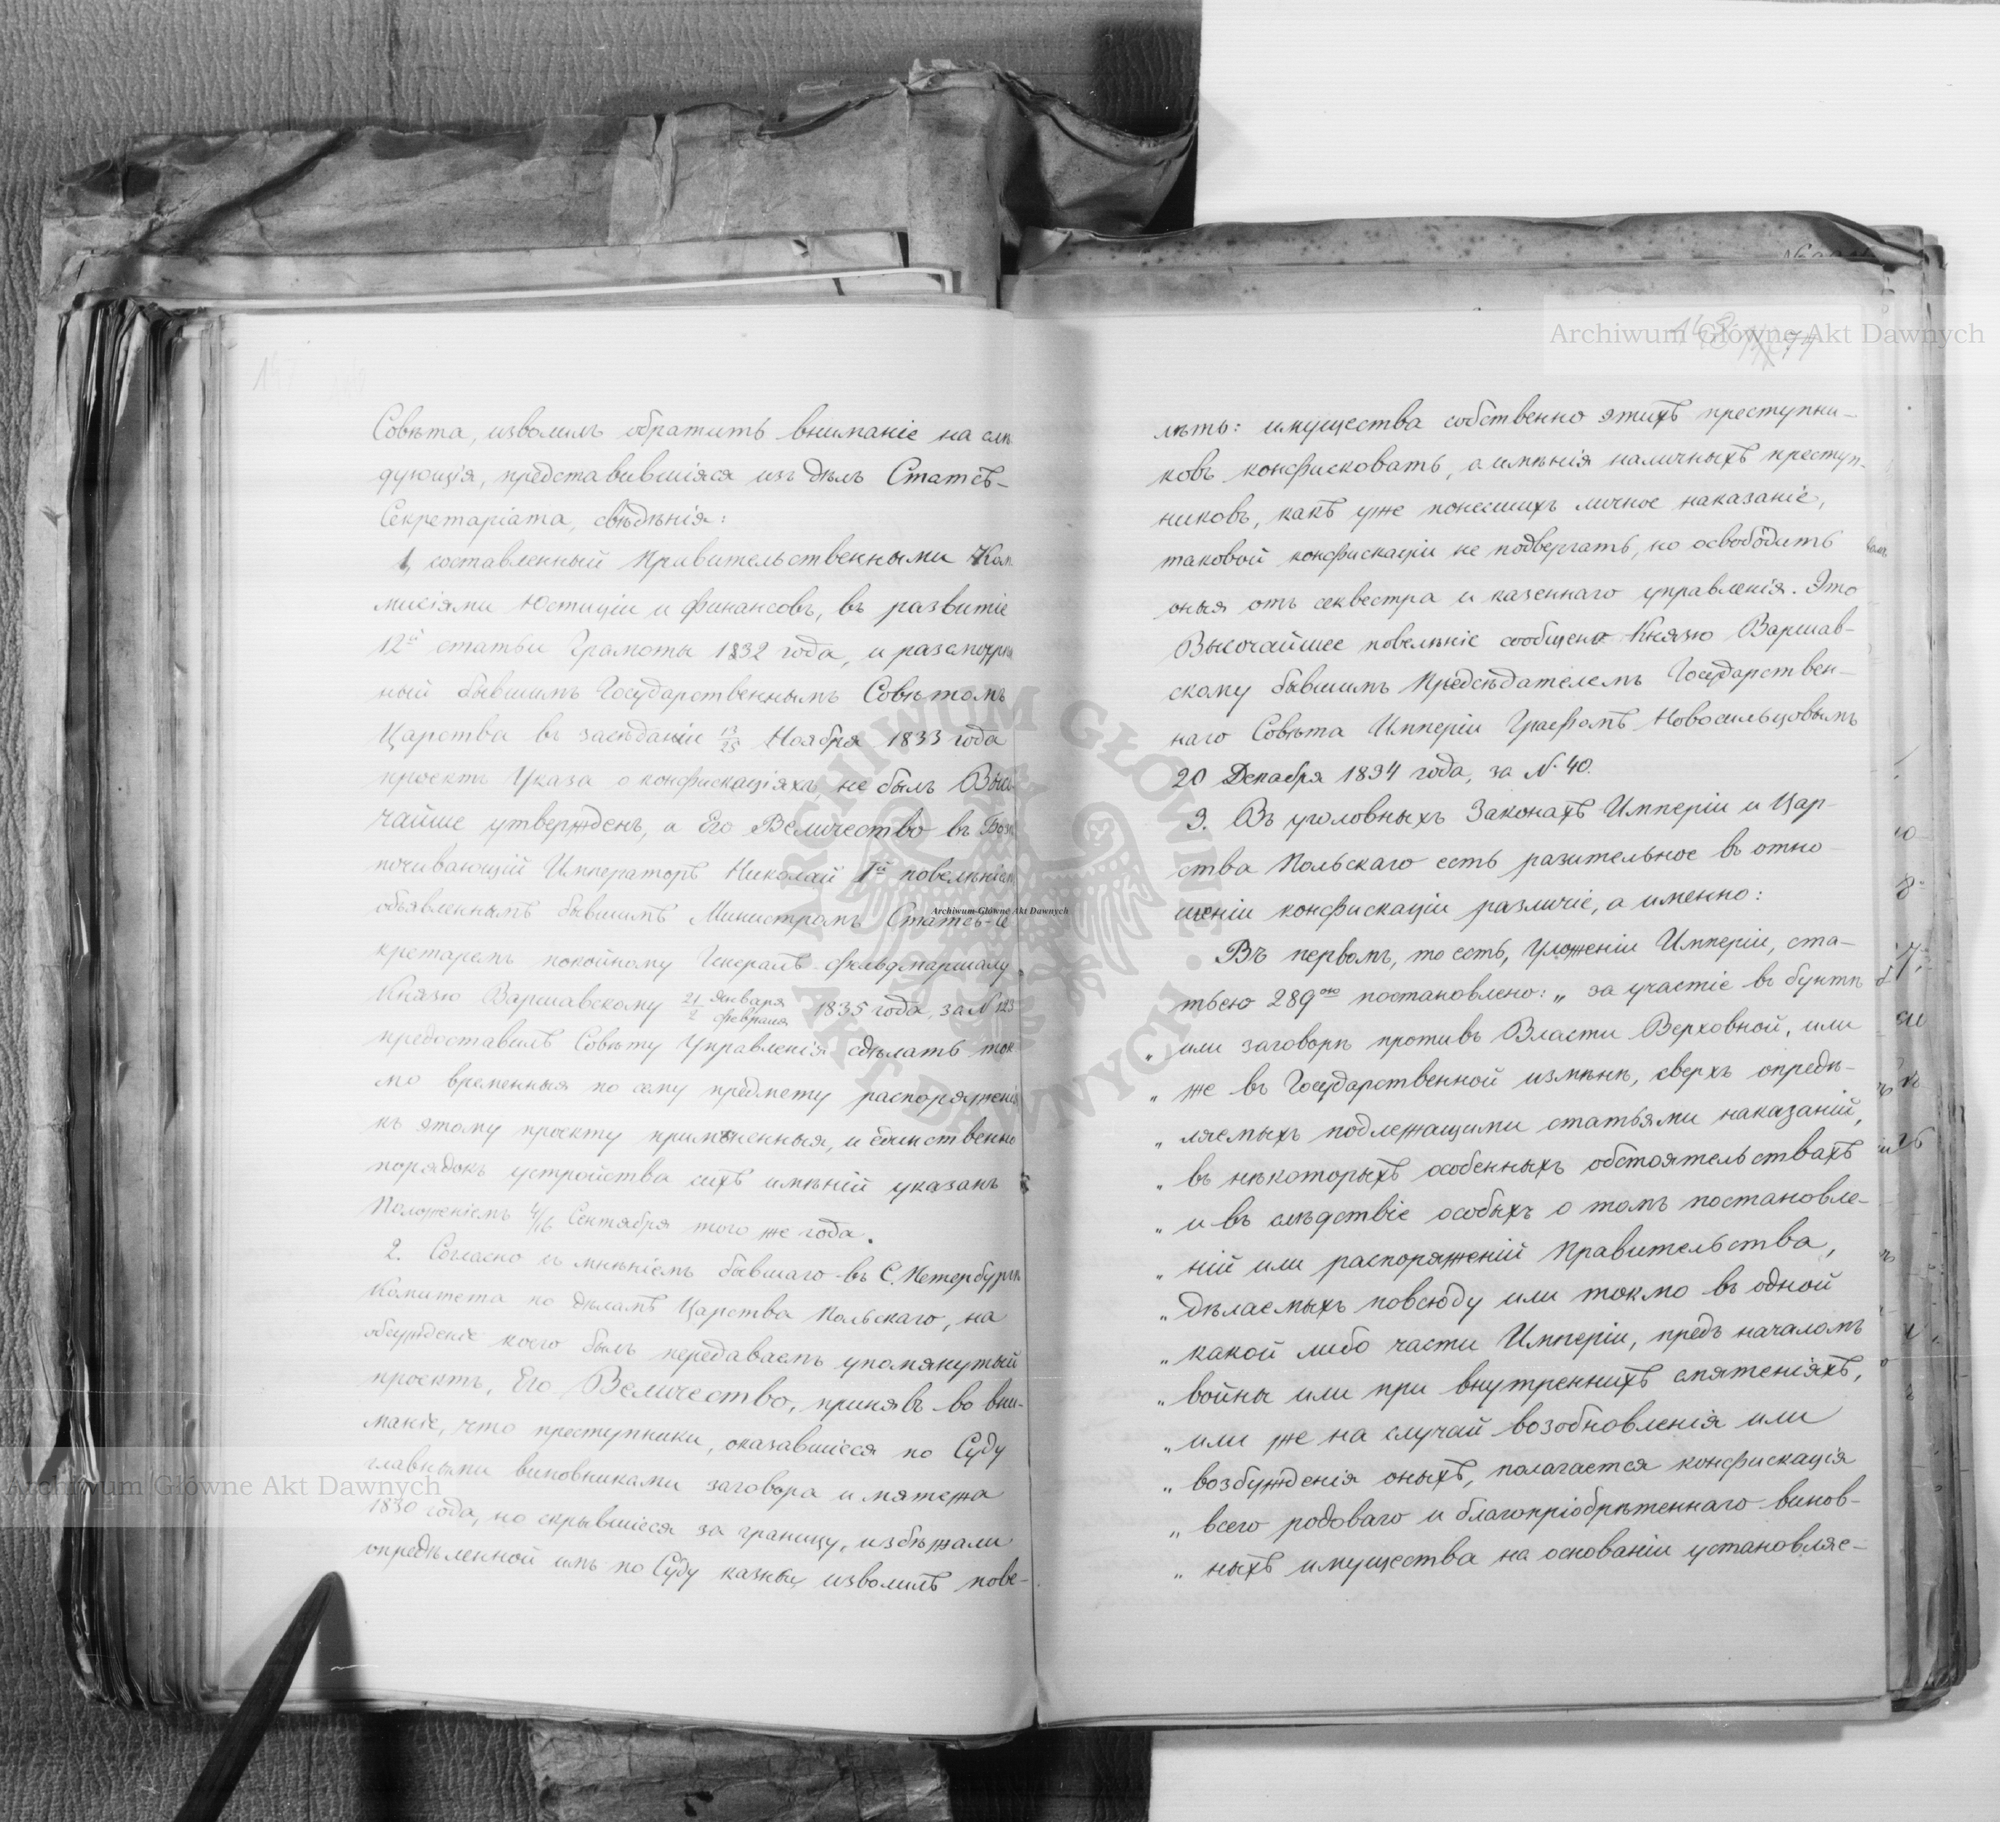 Совѣта, изволилъ обратить вниманіе на слѣ
дующія, представившіяся изъ дѣлъ Статсъ-
Секретаріата, свѣдѣнія:
1, составленный Правительственными Ком
мисіями Юстиціи и Финансовъ, въ развитіе
12й статьи Грамоты 1832 года, и разсмотрѣн
ный бывшимъ Государственнымъ Совѣтомъ
Царства въ засѣданіи 13/25 Ноября 1833 года
проектъ Указа о конфискаціяхъ не былъ Высо
чайше утвержденъ, а Его Величество въ Бозѣ
почивающій Императоръ Николай Iй повелѣніемъ
объявленнымъ бывшимъ Министромъ Статсъ-Се
кретаремъ покойному Генералъ-Фельдмаршалу
Князю Варшавскому 21 Января / 2 Февраля 1835 года, за N 123
предоставилъ Совѣту Управленія сдѣлать ток
мо временныя по сему предмету распоряженія
къ этому проекту примѣненныя, и единственно
порядокъ устройства сихъ имѣній указанъ
Положеніемъ 4/16 Сентября того же года.
2. Согласно съ мнѣніемъ бывшаго въ С. Петербургѣ
Комитета по дѣламъ Царства Польскаго, на
обсужденіе коего былъ передаваемъ упомянутый
проектъ, Его Величество, принявъ во вни-
маніе, что преступники, оказавшіеся по Суду
главными виновниками заговора и мятежа
1830 года, но скрывшіеся за границу, избѣжали
опредѣленной имъ по Суду казни, изволилъ пове-
148 74
лѣть: имущества собственно этихъ преступни-
ковъ конфисковать, а имѣнія наличныхъ преступ-
никовъ, какъ уже понесшихъ личное наказаніе,
таковой конфискаціи не подвергать, но освободить
оныя отъ секвестра и казеннаго управленія. Это
Высочайшее повелѣніе сообщено Князю Варшав-
скому бывшимъ Предсѣдателемъ Государствен-
наго Совѣта Имперіи Графомъ Новосильцовымъ
20 Декабря 1834 года, за N. 40.
3. Въ уголовныхъ Законахъ Имперіи и Цар-
ства Польскаго есть разительное въ отно-
шеніи конфискаціи различіе, а именно:
Въ первомъ, то есть, Уложеніи Имперіи, ста-
тьею 289ою постановлено: „за участіе въ бунтѣ
„ или заговорѣ противъ Власти Верховной, или
„ же въ Государственной измѣнѣ, сверхъ опредѣ-
„ ляемыхъ подлежащими статьями наказаній,
„ въ нѣкоторыхъ особенныхъ обстоятельствахъ
„ и въ слѣдствіе особыхъ о томъ постановле-
„ ній или распоряженій Правительства,
„ дѣлаемыхъ повсюду или токмо въ одной
„ какой либо части Имперіи, предъ началомъ
„ войны или при внутреннихъ смятеніяхъ,
„ или же на случай возобновленія или
„ возбужденія оныхъ, полагается конфискація
„ всего родоваго и благопріобрѣтеннаго винов-
„ ныхъ имущества на основаніи установляе-
Archiwum Główne Akt Dawnych
Archiwum Główne Akt Dawnych
Archiwum Główne Akt Dawnych
ARCHIWUM GŁÓWNE AKT DAWNYCH